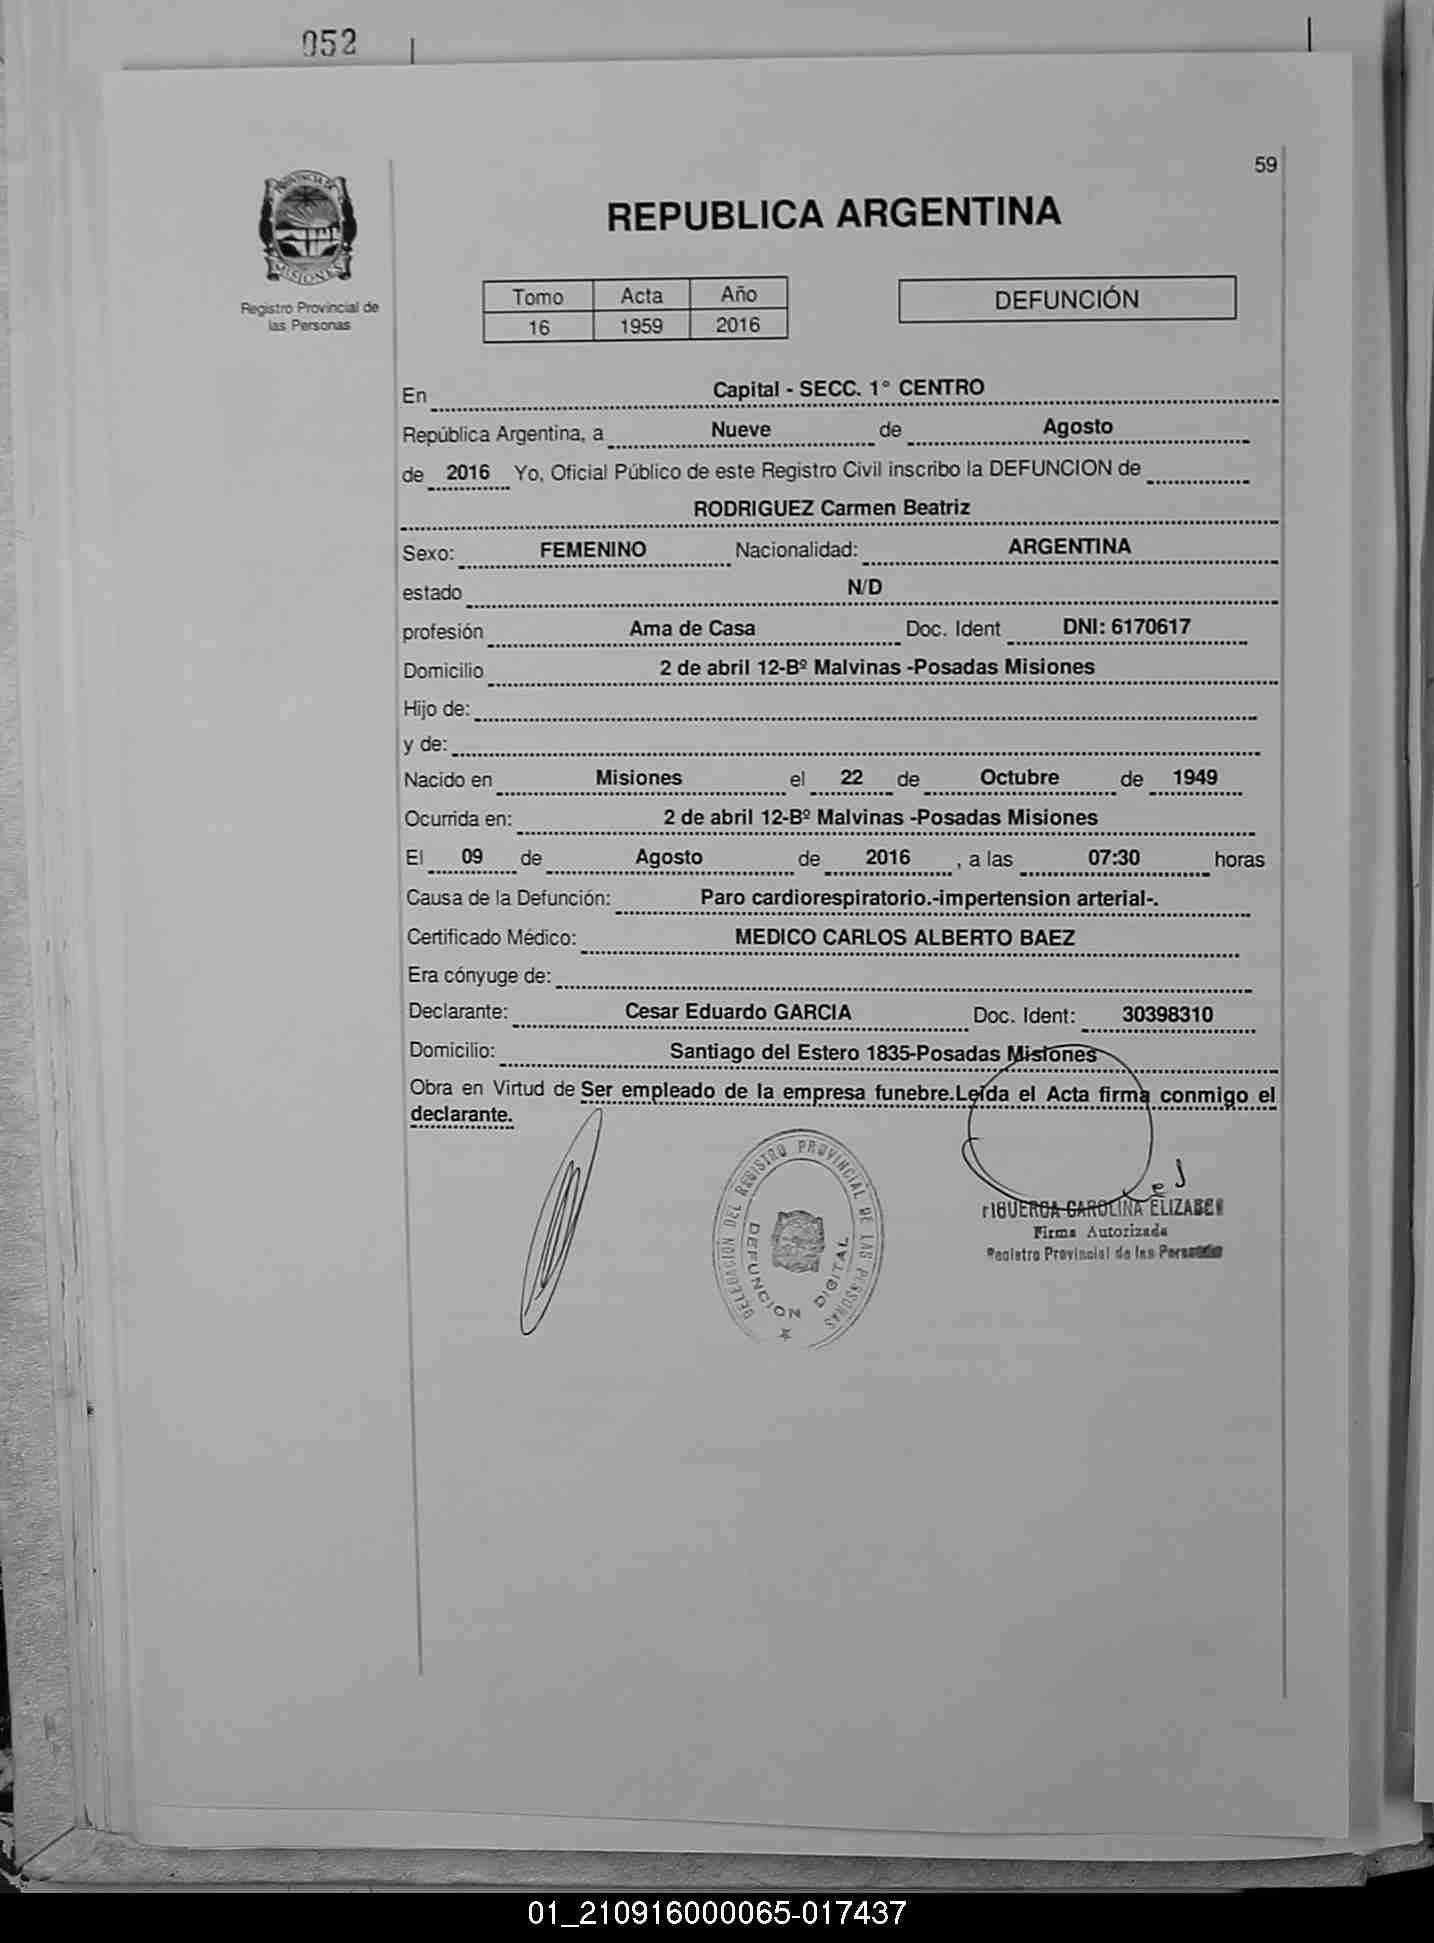 052
59
PROVINCIA DE
MISIONES
Registro Provincial de
las Personas
REPUBLICA ARGENTINA
Tomo Acta Año
16 1959 2016
DEFUNCIÓN
En Capital - SECC. 1° CENTRO
República Argentina, a Nueve de Agosto
de 2016 Yo, Oficial Público de este Registro Civil inscribo la DEFUNCION de
RODRIGUEZ Carmen Beatriz
Sexo: FEMENINO Nacionalidad: ARGENTINA
estado N/D
profesión Ama de Casa Doc. Ident DNI: 6170617
Domicilio 2 de abril 12-Bº Malvinas -Posadas Misiones
Hijo de:
y de:
Nacido en Misiones el 22 de Octubre de 1949
Ocurrida en: 2 de abril 12-Bº Malvinas -Posadas Misiones
El 09 de Agosto de 2016 , a las 07:30 horas
Causa de la Defunción: Paro cardiorespiratorio.-impertension arterial-.
Certificado Médico: MEDICO CARLOS ALBERTO BAEZ
Era cónyuge de:
Declarante: Cesar Eduardo GARCIA Doc. Ident: 30398310
Domicilio: Santiago del Estero 1835-Posadas Misiones
Obra en Virtud de Ser empleado de la empresa funebre.Leída el Acta firma conmigo el
declarante.
DELEGACION DEL REGISTRO PROVINCIAL DE LAS PERSONAS
DEFUNCION DIGITAL
CAROLINA
Firma Autorizada
Registro Provincial de las Personas
01_210916000065-017437